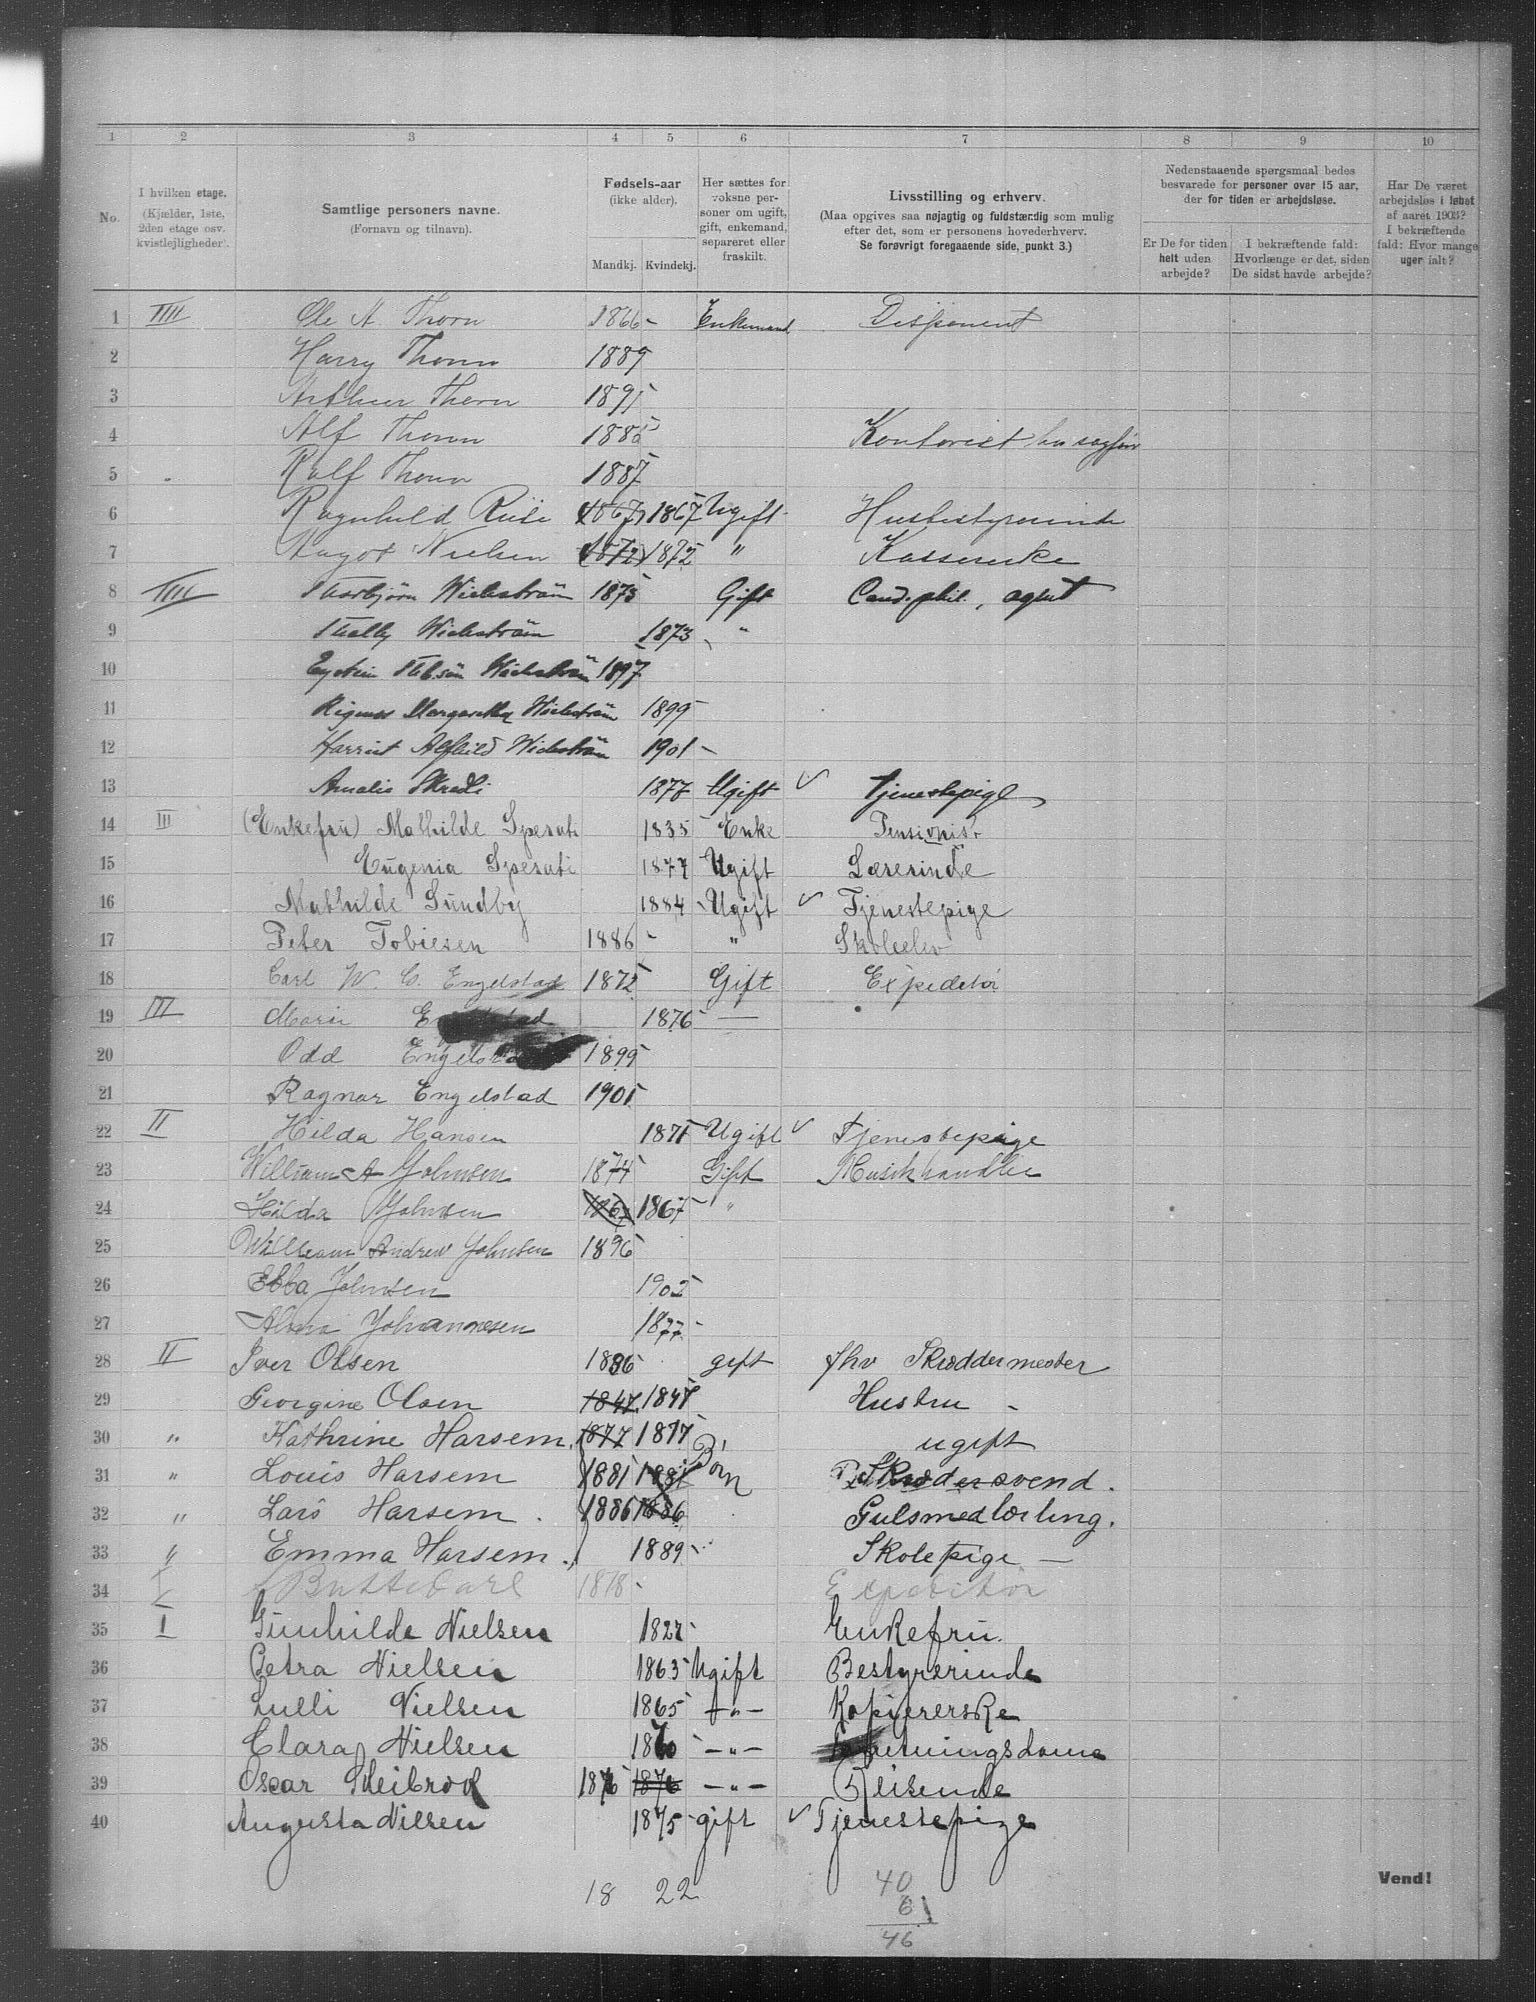 1 2 3 4 5 6 7 8 9 10
No.
I hvilken etage. (Kjælder, 1ste, 2den etage osv. kvistlejligheder).
Samtlige personers navne. (Fornavn og tilnavn).
Fødsels-aar (ikke alder). Mandkj. Kvindekj.
Her sættes for voksne personer om ugift, gift, enkemand, separeret eller fraskilt.
Livsstilling og erhverv. (Maa opgives saa nøjagtig og fuldstændig som mulig efter det, som er personens hovederhverv. Se forøvrigt foregaaende side, punkt 3.)
Nedenstaaende spørgsmaal bedes besvarede for personer over 15 aar, der for tiden er arbejdsløse.
Er De for tiden helt uden arbejde?
I bekræftende fald: Hvorlænge er det, siden De sidst havde arbejde?
Har De været arbejdsløs i løbet af aaret 1903? I bekræftende fald: Hvor mange uger ialt?
1 IIII Ole A. Thorn 1866 - Enkemand Disponent
2 Harry Thorn 1889
3 Arthur Thorn 1891
4 Alf Thorn 1885 Kontorist
5 Ralf Thorn 1887
6 Ragnhild 1867 1867 Ugift Husbestyrerinde
7 Aagot Nielsen 1872 1872 " Kassererske
8 IIII Thorbjörn Wickström 1873 Gift Cand. phil., agent
9 Thally Wickström 1873 "
10 Wickström 1897
11 Wickström 1899
12 Harriet Alfhild Wickström 1901 -
13 Amalie 1877 Ugift ✓ Tjenestepige
14 III (Enkefrü) Mathilde Sperati 1835 Enke Pensionist
15 Eugenia Sperati 1877 Ugift Lærerinde
16 Mathilde Sundby 1884 Ugift ✓ Tjenestepige
17 Peter Tobiesen 1886 - " Skoleelev
18 Carl W. C. Engelstad 1872 Gift Expeditör
19 III Marie 1876 —
20 Odd Engelstad 1899
21 Ragnar Engelstad 1901
22 II Hilda Hansen 1871 Ugift ✓ Tjenestepige
23 William A Johnsen 1874 Gift Musikhandler
24 Hilda Johnsen 1867 1867 "
25 William Andrew Johnsen 1896
26 Ebba Johnsen 1902
27 Johannesen 1877 -
28 II Iver Olsen 1836 gift fhv Skræddermester
29 Georgine Olsen 1847 1847 Hustru -
30 " Kathrine Harsem. 1877 1877 Börn ugift
31 " Louis Harsem 1881 1881 Skræddersvend.
32 " Lars Harsem. 1886 1886 Gulsmedlærling.
33 " Emma Harsem. 1889 Skolepige —
34 I 1878 - Expeditör
35 I Günhilde Nielsen 1827 Enkefrü.
36 Petra Nielsen 1863 Ugift Bestyrerinde
37 Lulli Nielsen 1865 -"- Kopiererske
38 Clara Nielsen 1870 -"-
39 Oscar 1876 1876 -"- Reisende
40 Augusta Nilsen 1875 gift ✓ Tjenestepige
18 22
40
6
46
Vend!